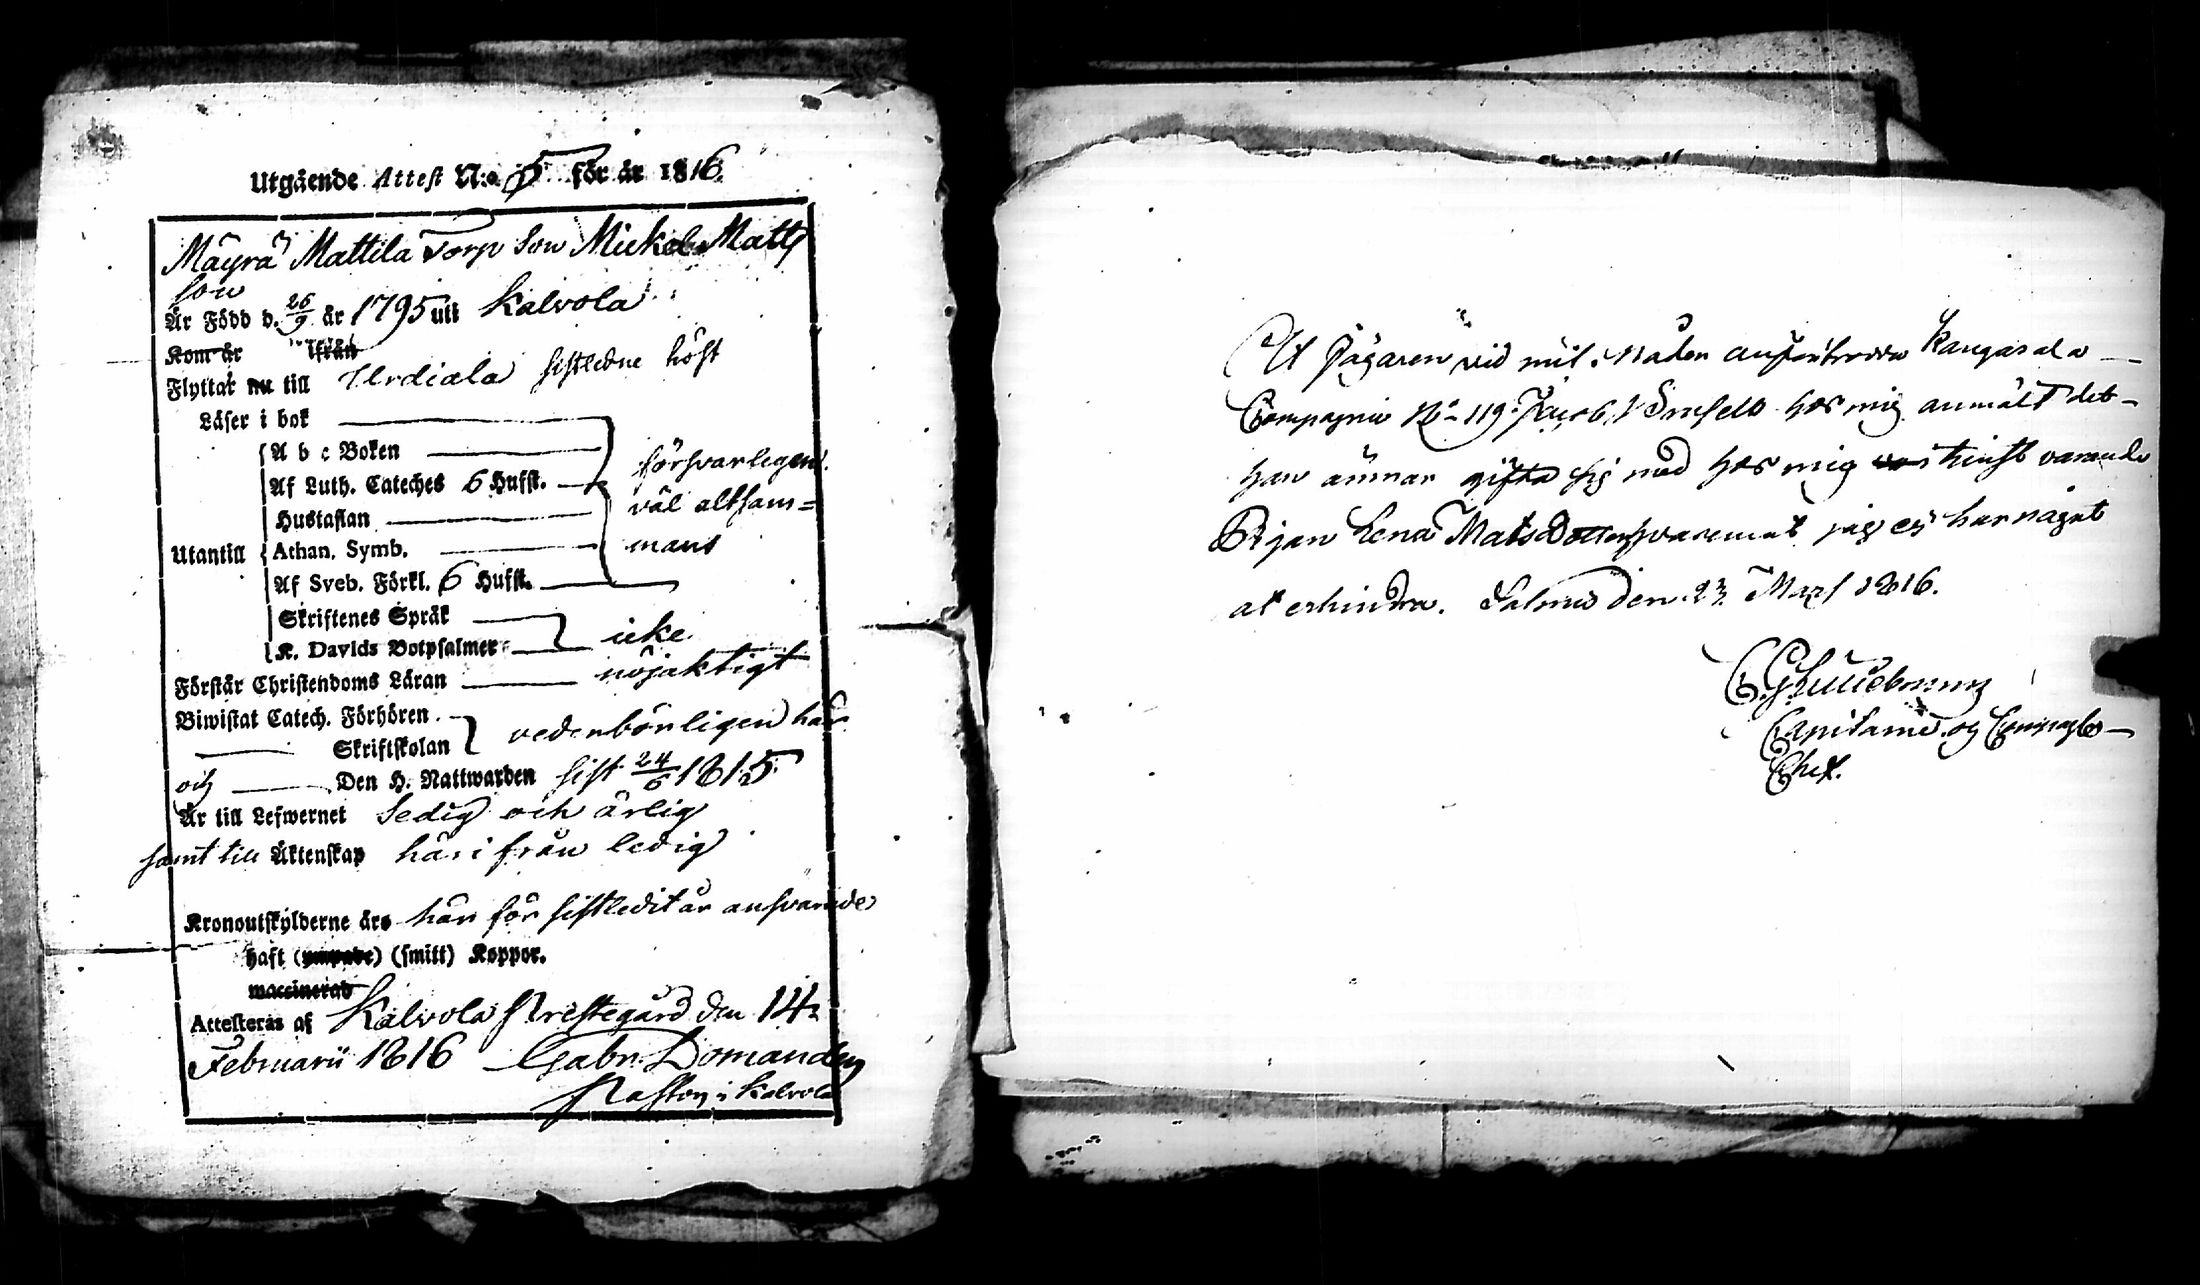 Utgående Attest N:o 5 för år 1816.
Mäyrä Mattila Torp Son Mickel Matts
son
Är Född d. 26/9 år 1795 uti Kalvola
Kom år ifrån
Flyttar nu till Urdiala sistledne höst
Läser i bok
A b c Boken
försvarligen
Af Luth. Cateches 6 Hufst.
väl altsam=
Hustaflan
Utantill Athan. Symb.
mans
Af Sveb. Förkl. 6 Hufst.
Skriftenes Språk
icke
K. Davids Botpsalmer
Förstår Christendoms Läran nöjaktigt
Biwistat Catech. Förhören
vederbörligen här
Skriftskolan
och Den H. Nattwarden sist 24/6 1815
Är till Lefwernet Sedig och ärlig
samt till Äktenskap häri från ledig
Kronoutskylderne äro här för sistledit år ansvarade
haft (smitt) Koppor.
waccinerad
Attesteras af Kalvola Prestegård den 14
Februarii 1816 Gabr. Domander
Pastor i Kalvola
At Jägaren vid mit i Nåder anförtrodda Kangasala
Compagnie No 119 Jacob hos mig anmält det
han ämnar gifta sig med hos mig tienst varande
Pigan Lena Matsdotter hvaremot jag ej har något
at erhindra. den 23 Mars 1816.
Capitaine og Compagnie
Chef.